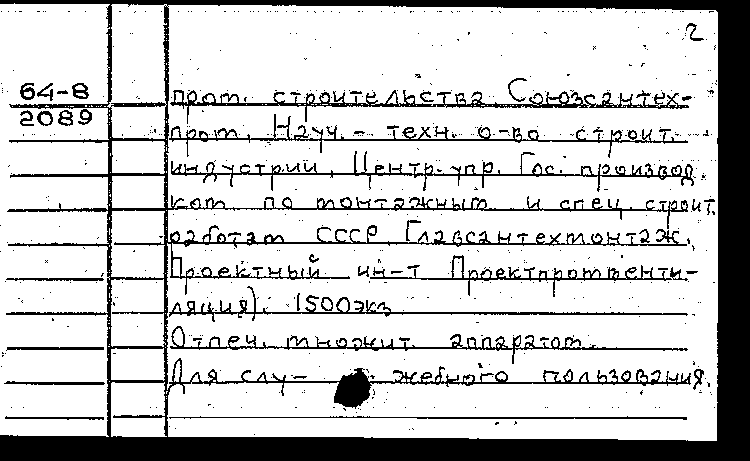 2
64-8
2089
пром. строительства Союзсантех-
пром, Науч.- техн. о-во строит.
индустрии, Центр. упр. Гос. производ.
ком по монтажным и спец. строит.
работам СССР Главсантехмонтаж.
Проектный ин-т Проектпромвенти-
ляция). 1500экз
Отпеч. множит. аппаратом.
Для слу- жебного пользования.